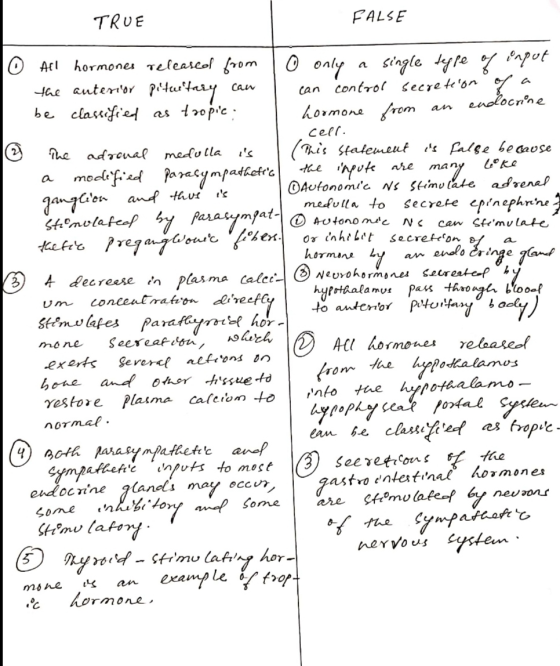 TRUE
① All hormones released from
the anterior pituitary can
be classified as tropic.
② The adrenal medulla is
a modified Parasympathetic
ganglion and thus is
stimulated by parasympat-
thetic preganglionic fibers.
③ A decrease in plasma calci-
um concentration directly
stimulates parathyroid hor-
mone secreation, which
exerts several actions on
bone and other tissue to
restore plasma calcium to
normal.
④ Both parasympathetic and
sympathetic inputs to most
endocrine glands may occur,
some inhibitory and some
stimulatory.
⑤ Thyroid-stimulating hor-
mone is an example of trop-
ic hormone.
FALSE
① only a single type of input
can control secretion of a
hormone from an endocrine
cell.
(This statement is False because
the inputs are many like
① Autonomic NS stimulate adrenal
medulla to secrete epinephrine}
② Autonomic NS can stimulate
or inhibit secretion of a
hormone by an endocringe gland
③ Neurohormones secreated by
hypothalamus pass through blood
to anterior pituitary body)
② All hormones released
from the hypothalamus
into the hypothalamo-
hypophyseal portal system
can be classified as tropic.
③ Secretions of the
gastrointestinal hormones
are stimulated by neurons
of the sympathetic
nervous system.